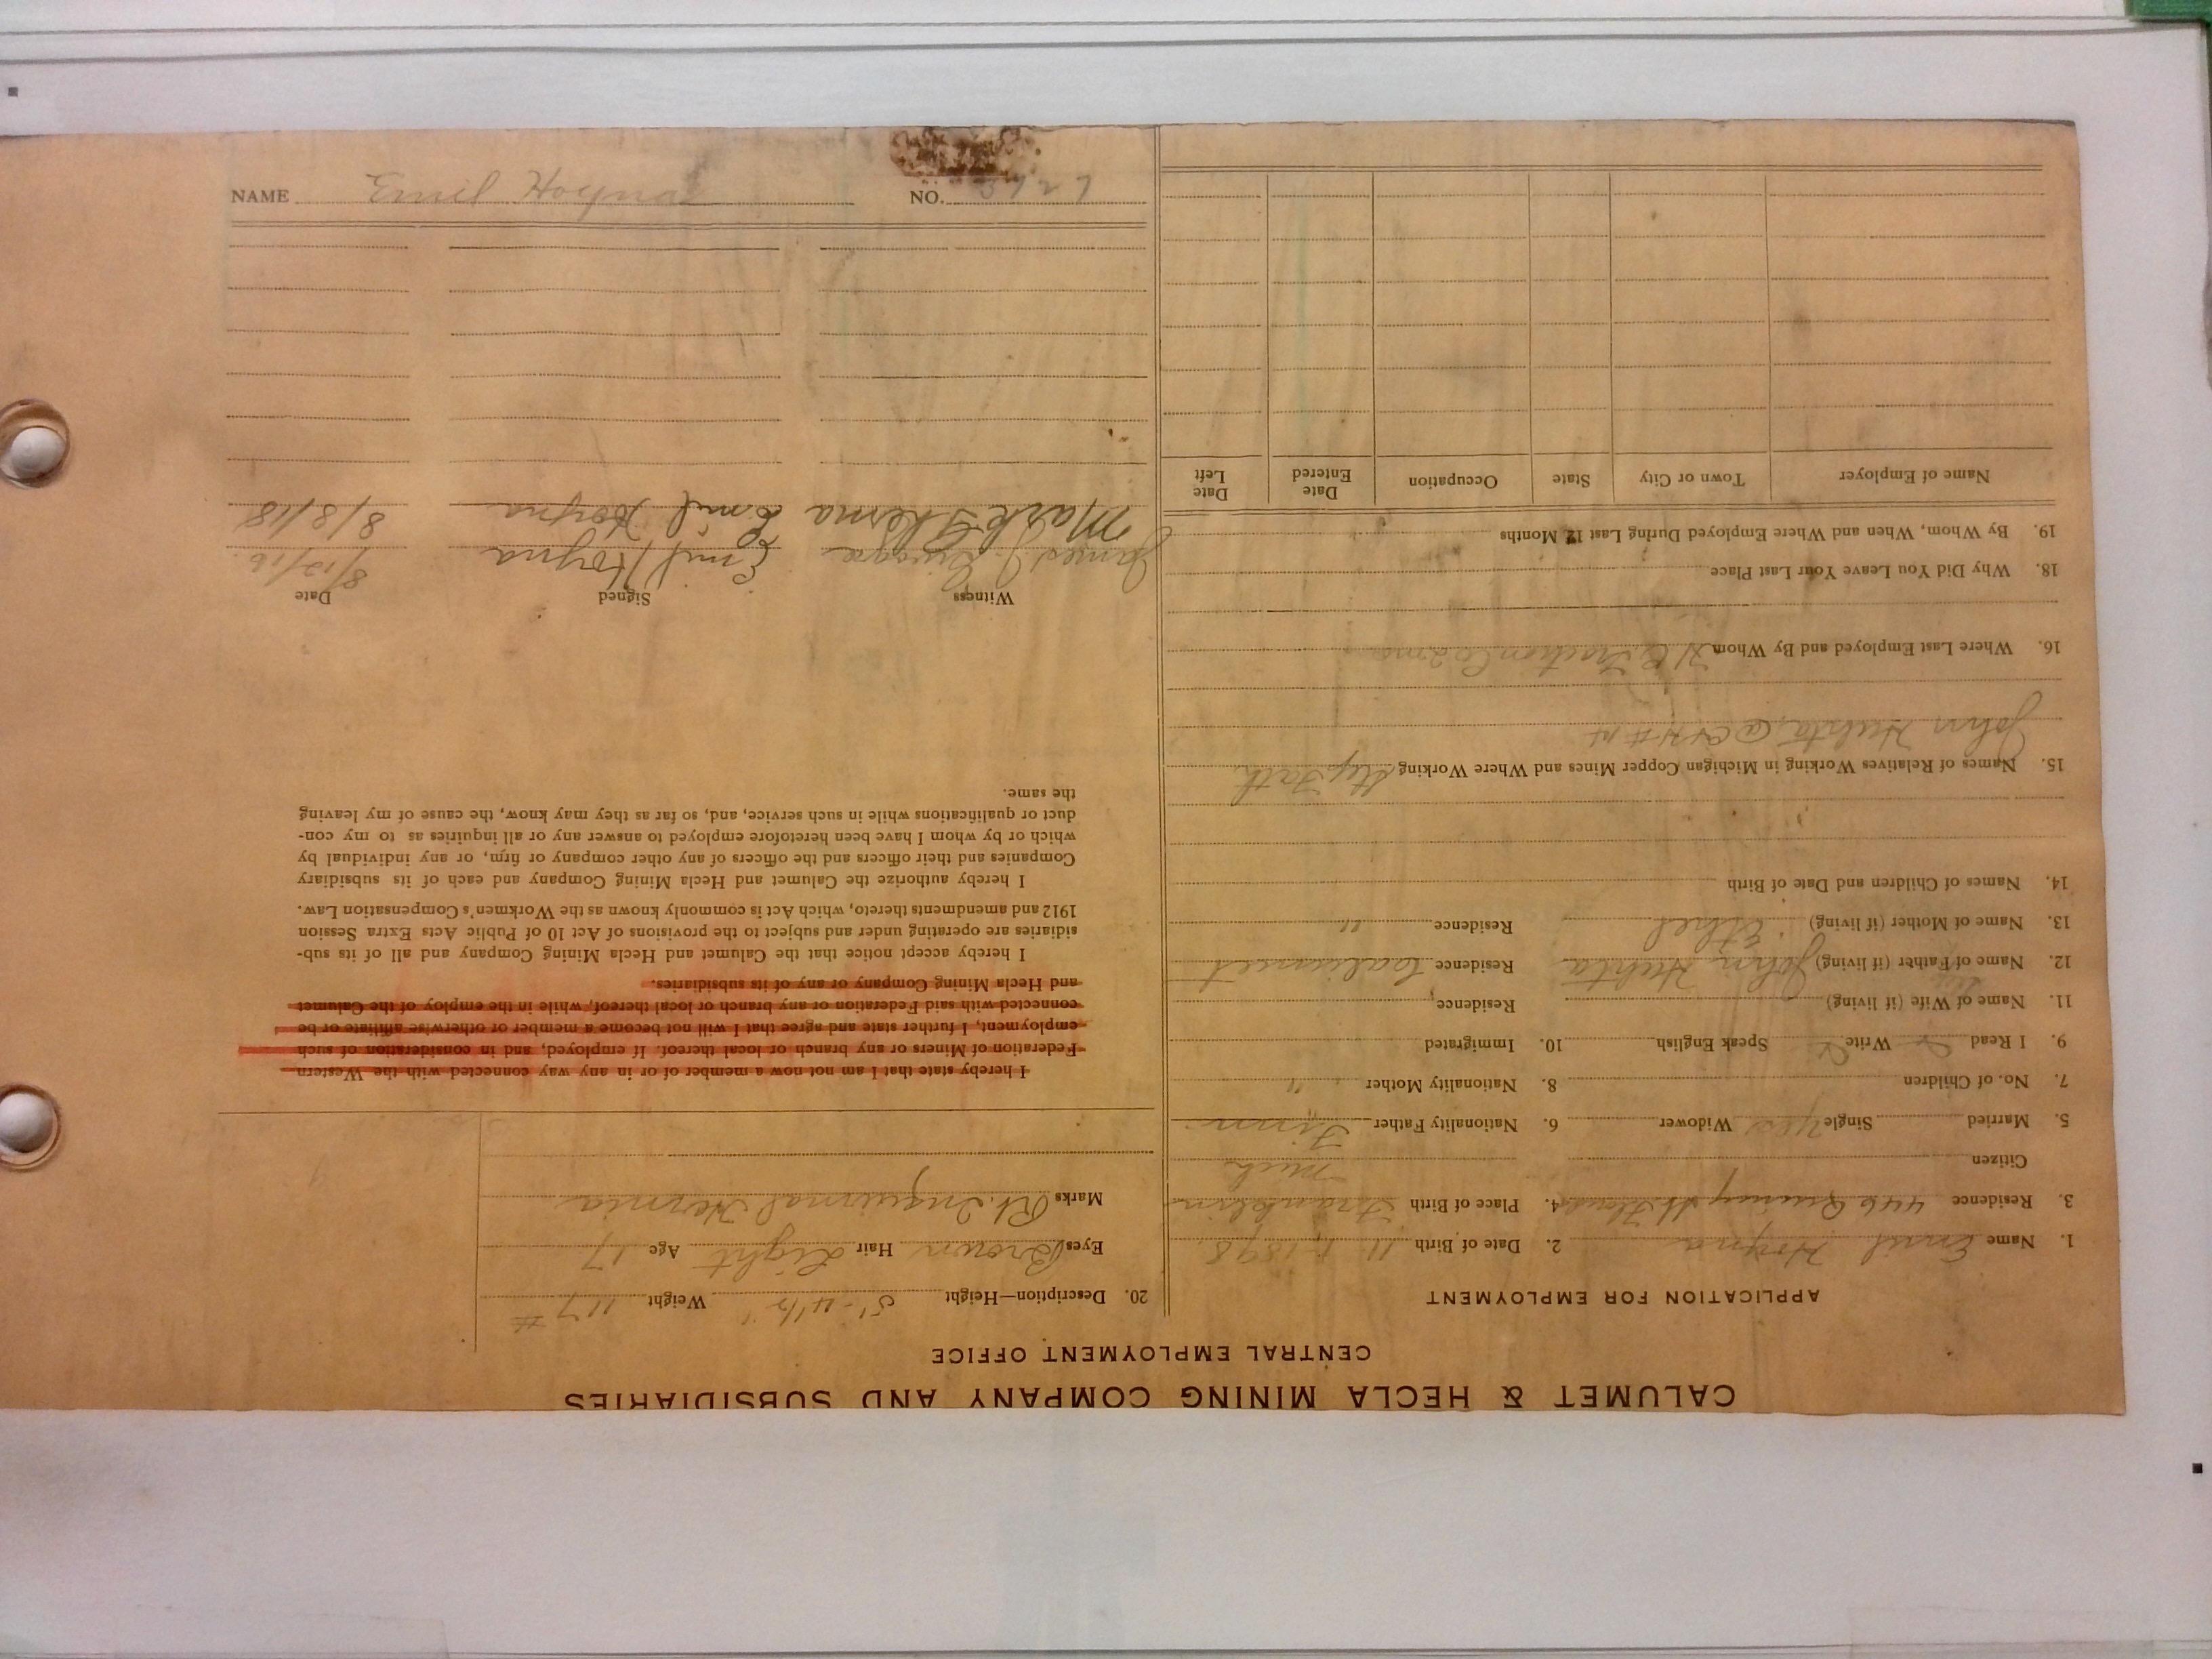 CALUMET & HECLA MINING COMPANY AND SUBSIDIARIES
CENTRAL EMPLOYMENT OFFICE
APPLICATION FOR EMPLOYMENT
1. Name Emil Hoyna 2. Date of Birth 11 1898
3. Residence 446 Quincy St. 4. Place of Birth Franklin
Mich
Citizen
5. Married Single Yes Widower 6. Nationality Father Finn
7. No. of Children 8. Nationality Mother "
9. I Read Write Speak English 10. Immigrated
11. Name of Wife (if living) Residence
Step
12. Name of Father (if living) John Huhta Residence Calumet
13. Name of Mother (if living) Ethel Residence "
14. Names of Children and Date of Birth
15. Names of Relatives Working in Michigan Copper Mines and Where Working Step Fath
John Huhta @ C+H #
16. Where Last Employed and By Whom Traction Co 2 mo
18. Why Did You Leave Your Last Place
19. By Whom, When and Where Employed During Last 12 Months
Name of Employer Town or City State Occupation Date Entered Date Left
20. Description—Height 5'-4½" Weight 117 #
Eyes Brown Hair Light Age 17
Marks Rt. Inguinal Hernia
I hereby state that I am not now a member of or in any way connected with the Western
Federation of Miners or any branch or local thereof. If employed, and in consideration of such
employment, I further state and agree that I will not become a member or otherwise affiliate or be
connected with said Federation or any branch or local thereof, while in the employ of the Calumet
and Hecla Mining Company or any of its subsidiaries.
I hereby accept notice that the Calumet and Hecla Mining Company and all of its sub-
sidiaries are operating under and subject to the provisions of Act 10 of Public Acts Extra Session
1912 and amendments thereto, which Act is commonly known as the Workmen's Compensation Law.
I hereby authorize the Calumet and Hecla Mining Company and each of its subsidiary
Companies and their officers and the officers of any other company or firm, or any individual by
which or by whom I have been heretofore employed to answer any or all inquiries as to my con-
duct or qualifications while in such service, and, so far as they may know, the cause of my leaving
the same.
Witness Signed Date
James J. Emil Hoyna 8/12/16
Mark Emil Hoyna 8/8/18
NAME Emil Hoyna NO.